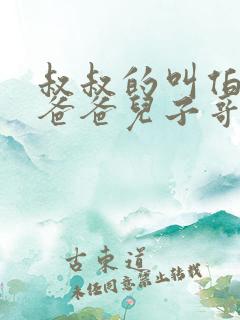 叔叔的叫伯
爸爸兒子哥
古東道
未经同意禁止转载